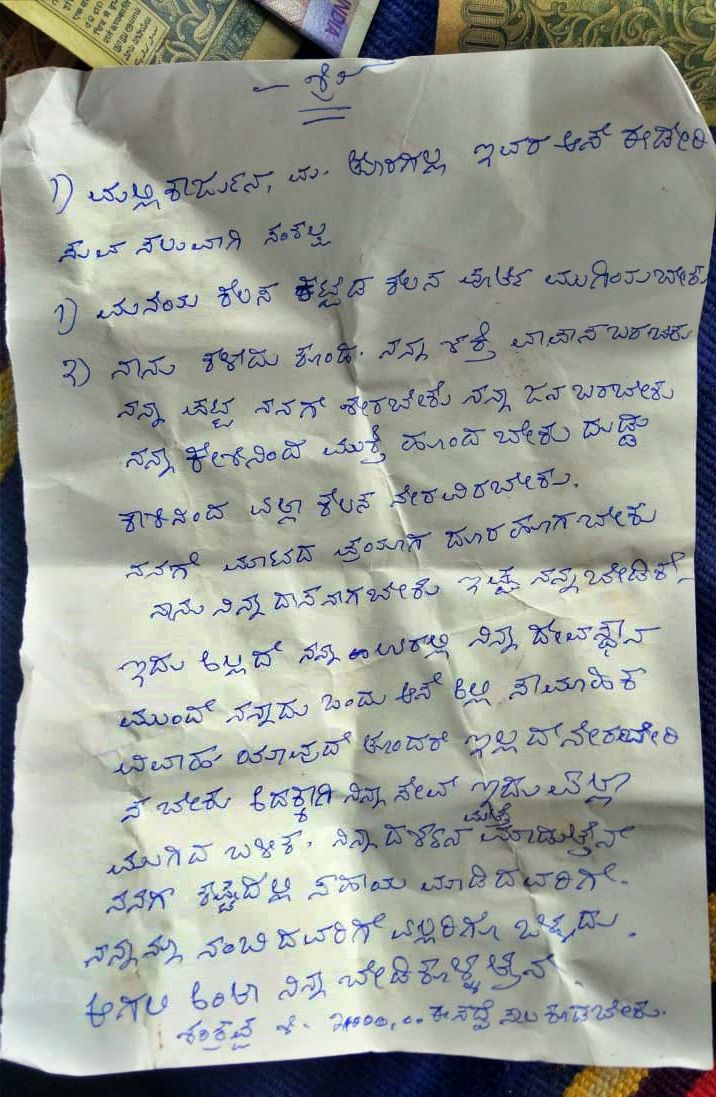 - ಶ್ರೀ -
1) ಮಲ್ಲಿಕಾರ್ಜುನ, ಮ. ಇವರ ಆಸೆ ಈಡೇರಿ
ಸುವ ಸಲುವಾಗಿ ಸಂಕಲ್ಪ
1) ಮನೆಯ ಕೆಲಸ ಕಟ್ಟಡ ಕೆಲಸ ಪೂರ್ಣ ಮುಗಿಯಬೇಕು
2) ನಾನು ಕಳೆದು ಕೊಂಡ. ನನ್ನ ಶಕ್ತಿ ವಾಪಾಸ ಬರಬೇಕು
ನನ್ನ ಪಟ್ಟ ನನಗೆ ಸೇರಬೇಕು ನನ್ನ ಜನ ಬರಬೇಕು
ನನ್ನ ಕೇಸನಿಂದ ಮುಕ್ತಿ ಹೊಂದ ಬೇಕು ದುಡ್ಡು
ಕಾಸಿನಿಂದ ಎಲ್ಲಾ ಕೆಲಸ ನೇರವೆರಬೇಕು.
ನನಗೆ ಮಾಟದ ಪ್ರಯೋಗ ದೂರ ಹೋಗಬೇಕು
ನಾನು ನಿನ್ನ ದಾಸನಾಗಬೇಕು ಇಷ್ಟ ನನ್ನ ಬೇಡಿಕೆ
ಇದು ಅಲ್ಲದೆ ನನ್ನ ಊರಲ್ಲಿ ನಿನ್ನ ದೇವಸ್ಥಾನ
ಮುಂದೆ ನನ್ನದು ಒಂದು ಆಸೆ ಅಲ್ಲಿ ಸಾಮೂಹಿಕ
ವಿವಾಹ ಯಾವುದೆ ತೊಂದರೆ ಇಲ್ಲದೆ ನೇರವೇರಿ
ಸ ಬೇಕು ಅದಕ್ಕಾಗಿ ನಿನ್ನ ಸೇವೆ ಇದು ಎಲ್ಲಾ
ಮುಗಿದ ಬಳಿಕ. ನಿನ್ನ ದರ್ಶನ ಮತ್ತೆ ಮಾಡುತ್ತೇನೆ
ನನಗೆ ಕಷ್ಟದಲ್ಲಿ ಸಹಾಯ ಮಾಡಿದವರಿಗೆ.
ನನ್ನನ್ನು ನಂಬಿದವರಿಗೆ ಎಲ್ಲರಿಗೂ ಒಳ್ಳೆದು.
ಆಗಲಿ ಅಂತಾ ನಿನ್ನ ಬೇಡಿಕೊಳ್ಳುತ್ತೇನೆ.
ಕೂಡಬೇಕು.